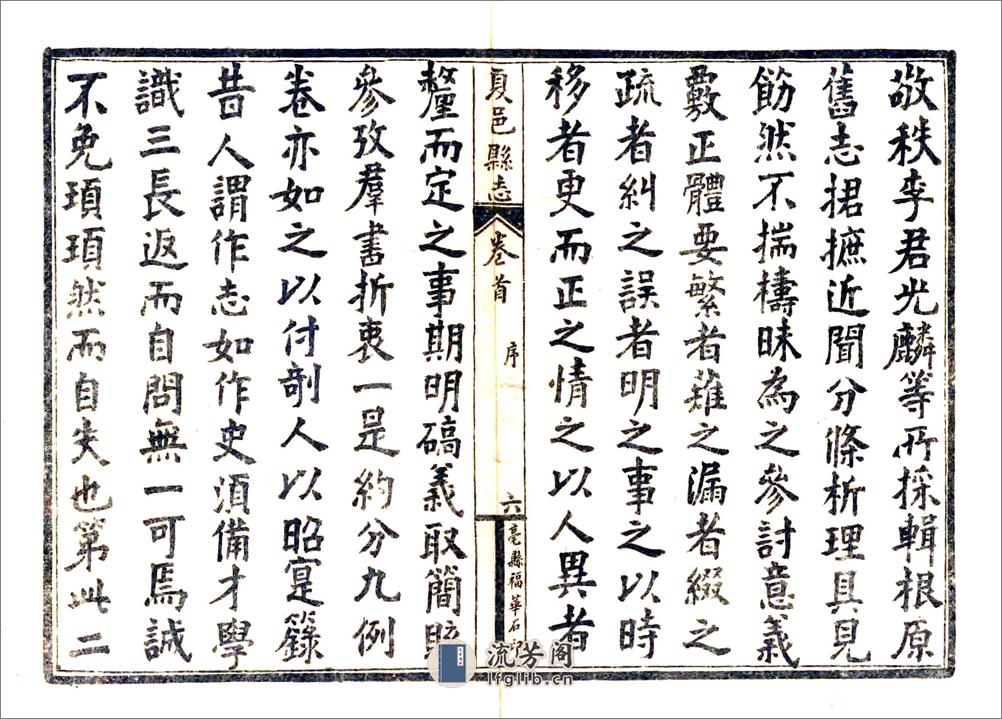 敬秩李君光麟等所採輯根原
舊志捃摭近聞分條析理具見
筋然不揣檮昧為之參討意義
覈正體要繁者薙之漏者綴之
疏者糾之誤者明之事之以時
移者更而正之情之以人異者
夏邑縣志
卷首
序
六
亳縣福華石印
釐而定之事期明碻義取簡賅
參攷羣書折衷一是約分九例
卷亦如之以付剞人以昭寔錄
昔人謂作志如作史須備才學
識三長返而自問無一可焉誠
不免項項然而自失也第此二
流芳阁
lfglib.cn